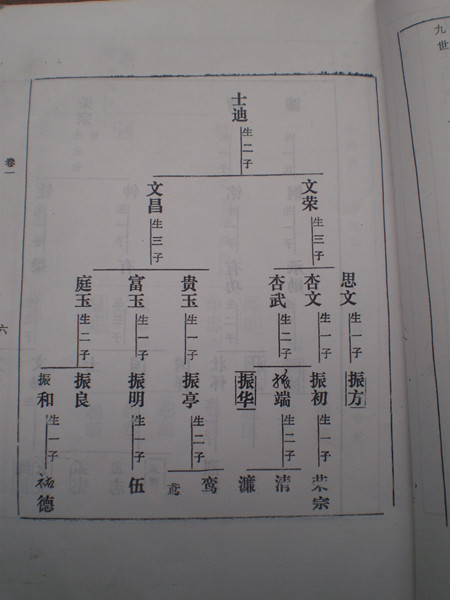 九世
士迪
生二子
文荣
生三子
文昌
生三子
思文
生一子
杏文
生一子
杏武
生二子
贵玉
生一子
富玉
生一子
庭玉
生二子
振方
振初
生一子
振端
生二子
振华
振亭
生二子
振明
生一子
振良
振和
生一子
荣宗
清
濂
鸾
鸢
伍
德
卷一
六